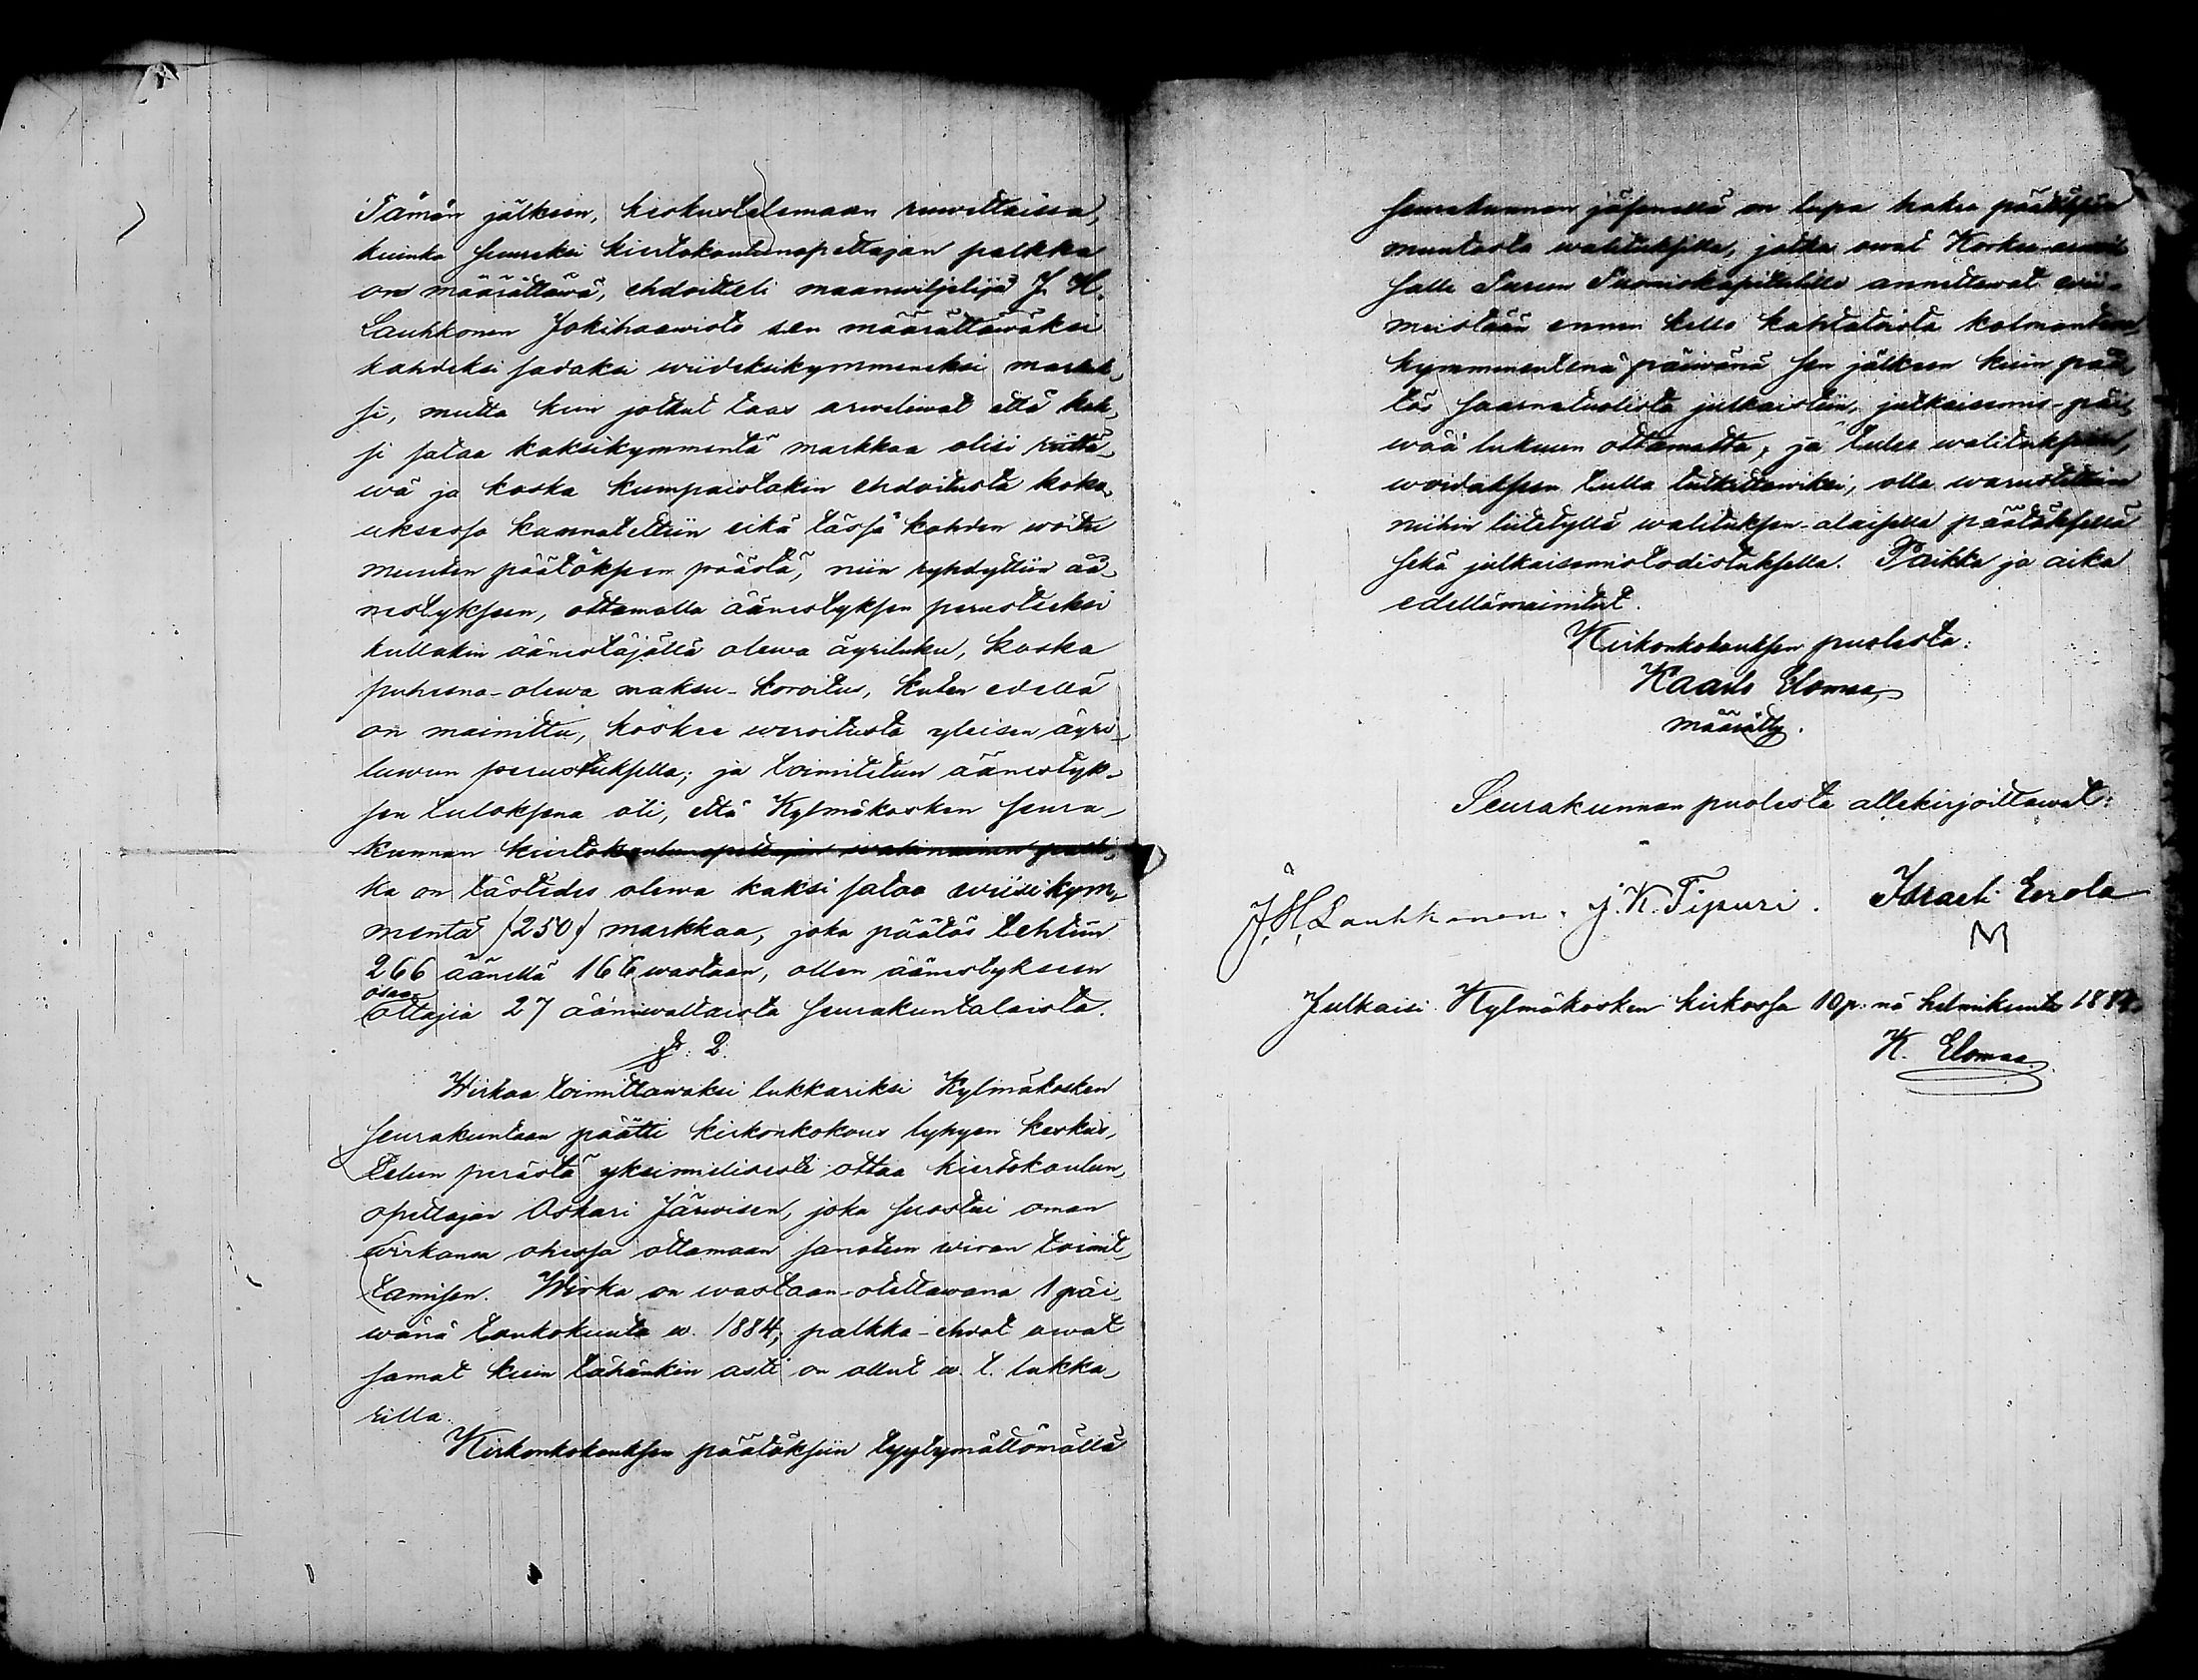 Tämän jälkeen, keskustelemaan ruwettaissa,
kuinka suureksi kiertokoulunopettajan palkka
on määrättäwä, ehdoitteli maanwiljelijä J. H.
Lauhkonen Jokihaawisto sen määrättäwäksi
kahdeksi sadaksi wiideksikymmeneksi markak-
si, mutta kun jotkut taas arweliwat että kak-
si sataa kaksikymmentä markkaa olisi riittä-
wä ja koska kumpaistakin ehdoitusta koko-
uksessa kannatettiin eikä tässä kohden woitu
muuten päätöksen päästä, niin ryhdyttiin ää-
nestykseen, ottamalla äänestyksen perusteeksi
kullakin äänestäjällä olewa äyriluku, koska
puheena-olewa maksu-koroitus, kuten edellä
on mainittu, koskee weroitusta yleisen äyri-
luwun perustuksella; ja toimitetun äänestyk-
sen tuloksena oli, että Kylmäkosken seura-
kunnan kiertokoulunopettajan wakinainen palk-
ka on tästedes olewa kaksi sataa wiisikym-
mentä (250) markkaa, joka päätös tehtiin
266 äänellä 166 wastaan, ollen äänestykseen
osaa-
ottajia 27 ääniwaltaista seurakuntalaista.
§. 2.
Wirkaa toimittawaksi lukkariksi Kylmäkosken
seurakuntaan päätti kirkonkokous lyhyen keskus-
telun perästä yksimielisesti ottaa kiertokoulun-
opettajan Oskari Järwisen, joka suostui oman
wirkansa ohessa ottamaan sanotun wiran toimit-
tamisen. Wirka on wastaan-otettawana 1 päi-
wänä toukokuuta w. 1884, palkka-ehdot owat
samat kuin tähänkin asti on ollut w. t. lukka-
rilla.
Kirkonkokouksen päätöksiin tyytymättömällä
seurakunnan jäsenellä on lupa hakea päätöksen
muutosta walituksilla, jotka owat Korkea-arwoi-
selle Turun Tuomiokapitulille annettawat wii-
meistään ennen kello kahtatoista kolmantena-
kymmenentenä päiwänä sen jälkeen kuin pää-
tös saarnatuolista julkaistiin, julkaisemis-päi-
wää lukuun ottamatta, ja tulee walituksien,
woidakseen tulla tutkittawiksi, olla warustettuina
niihin liitetyllä walituksen-alaisella päätöksellä
sekä julkaisemistodistuksella. Paikka ja aika
edellämainitut.
Kirkonkokouksen puolesta:
Kaarlo Elomaa,
määrätty.
Seurakunnan puolesta allekirjoittawat:
J. H. Lauhkonen. J. K. Tipuri. Israeli Eerola
Julkaisi Kylmäkosken kirkossa 10 p:nä helmikuuta 1884.
K. Elomaa